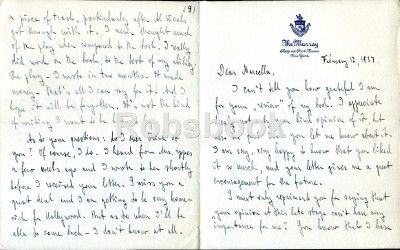 (9)
a piece of trash, particularly after Al Woods
got through with it. I never thought much
of the play when compared to the book. I really
did work on the book, to the best of my ability.
The play - I wrote in two months. It made
money - that's all I can say for it. And I
hope it will be forgotten. It's not the kind
of writing I want to be
As to your questions: do I ever think of
you? Of course, I do. I heard from
a few weeks ago and I wrote to her shortly
before I received your letter. I miss you a
great deal and I am getting to be very home-
sick for Hollywood. But as to when I'll be
able to come back - I don't know at all.
The Murray
New York
February 12, 1937
Dear Marcella,
I can't tell you how grateful I am
for your "review" of my book. I appreciate
kind opinion of it, let
you let me know about it.
I am very, very happy to know that you liked
it so much, and your letter gives me a great
encouragement for the future.
I must only reprimand you for saying that
your opinion at this late stage can't have any
importance for me? You know that I have
Robsbook